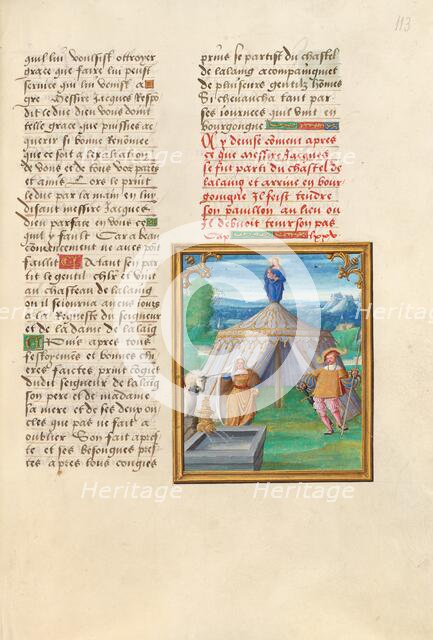 113
quil lui voulsist ottroyer
grace que faire lui peust
service qui lui venist a
gre Messire Jacques respo
dit le duc dieu vous doint
telle grace que puissies ac
querir si bonne renomee
que ce soit a lexaltation
de vous et de tous voz pares
et amis Lors le print
le duc par la main en lui
disant messire Jacques
dieu parface en vous ce
quil y fault Car a beau
commencement ne aves pot
failly Et a tant sen par
tit le gentil chlr et vint
au chasteau de lalaing
ou il seiourna aucuns iours
a la requeste du seigneur
et de la dame de lalaig
Puis apres tous
festoyemens et bonnes chi
eres faictes print congie
dudit seigneur de lalaing
son pere et de madame
sa mere et de ses deux on
cles que pas ne fait a
oublier Son fait apres
te et ses besongnes pres
tes apres tous congies
prins se partist du chastel
de lalaing acompaingnet
de plusieurs gentilz homes
Si chevaucha tant par
ses iournees quil vint en
bourgongne
Cy devise coment apres
ce que messire Jacques
se fut parti du chastel de
lalaing et arrive en bour
gongne Il feist tendre
son pavillon au lieu ou
il debvoit tenir son pas
Cap lxxv
Heritage
Heritage
Heritage
Heritage
Heritage
Heritage